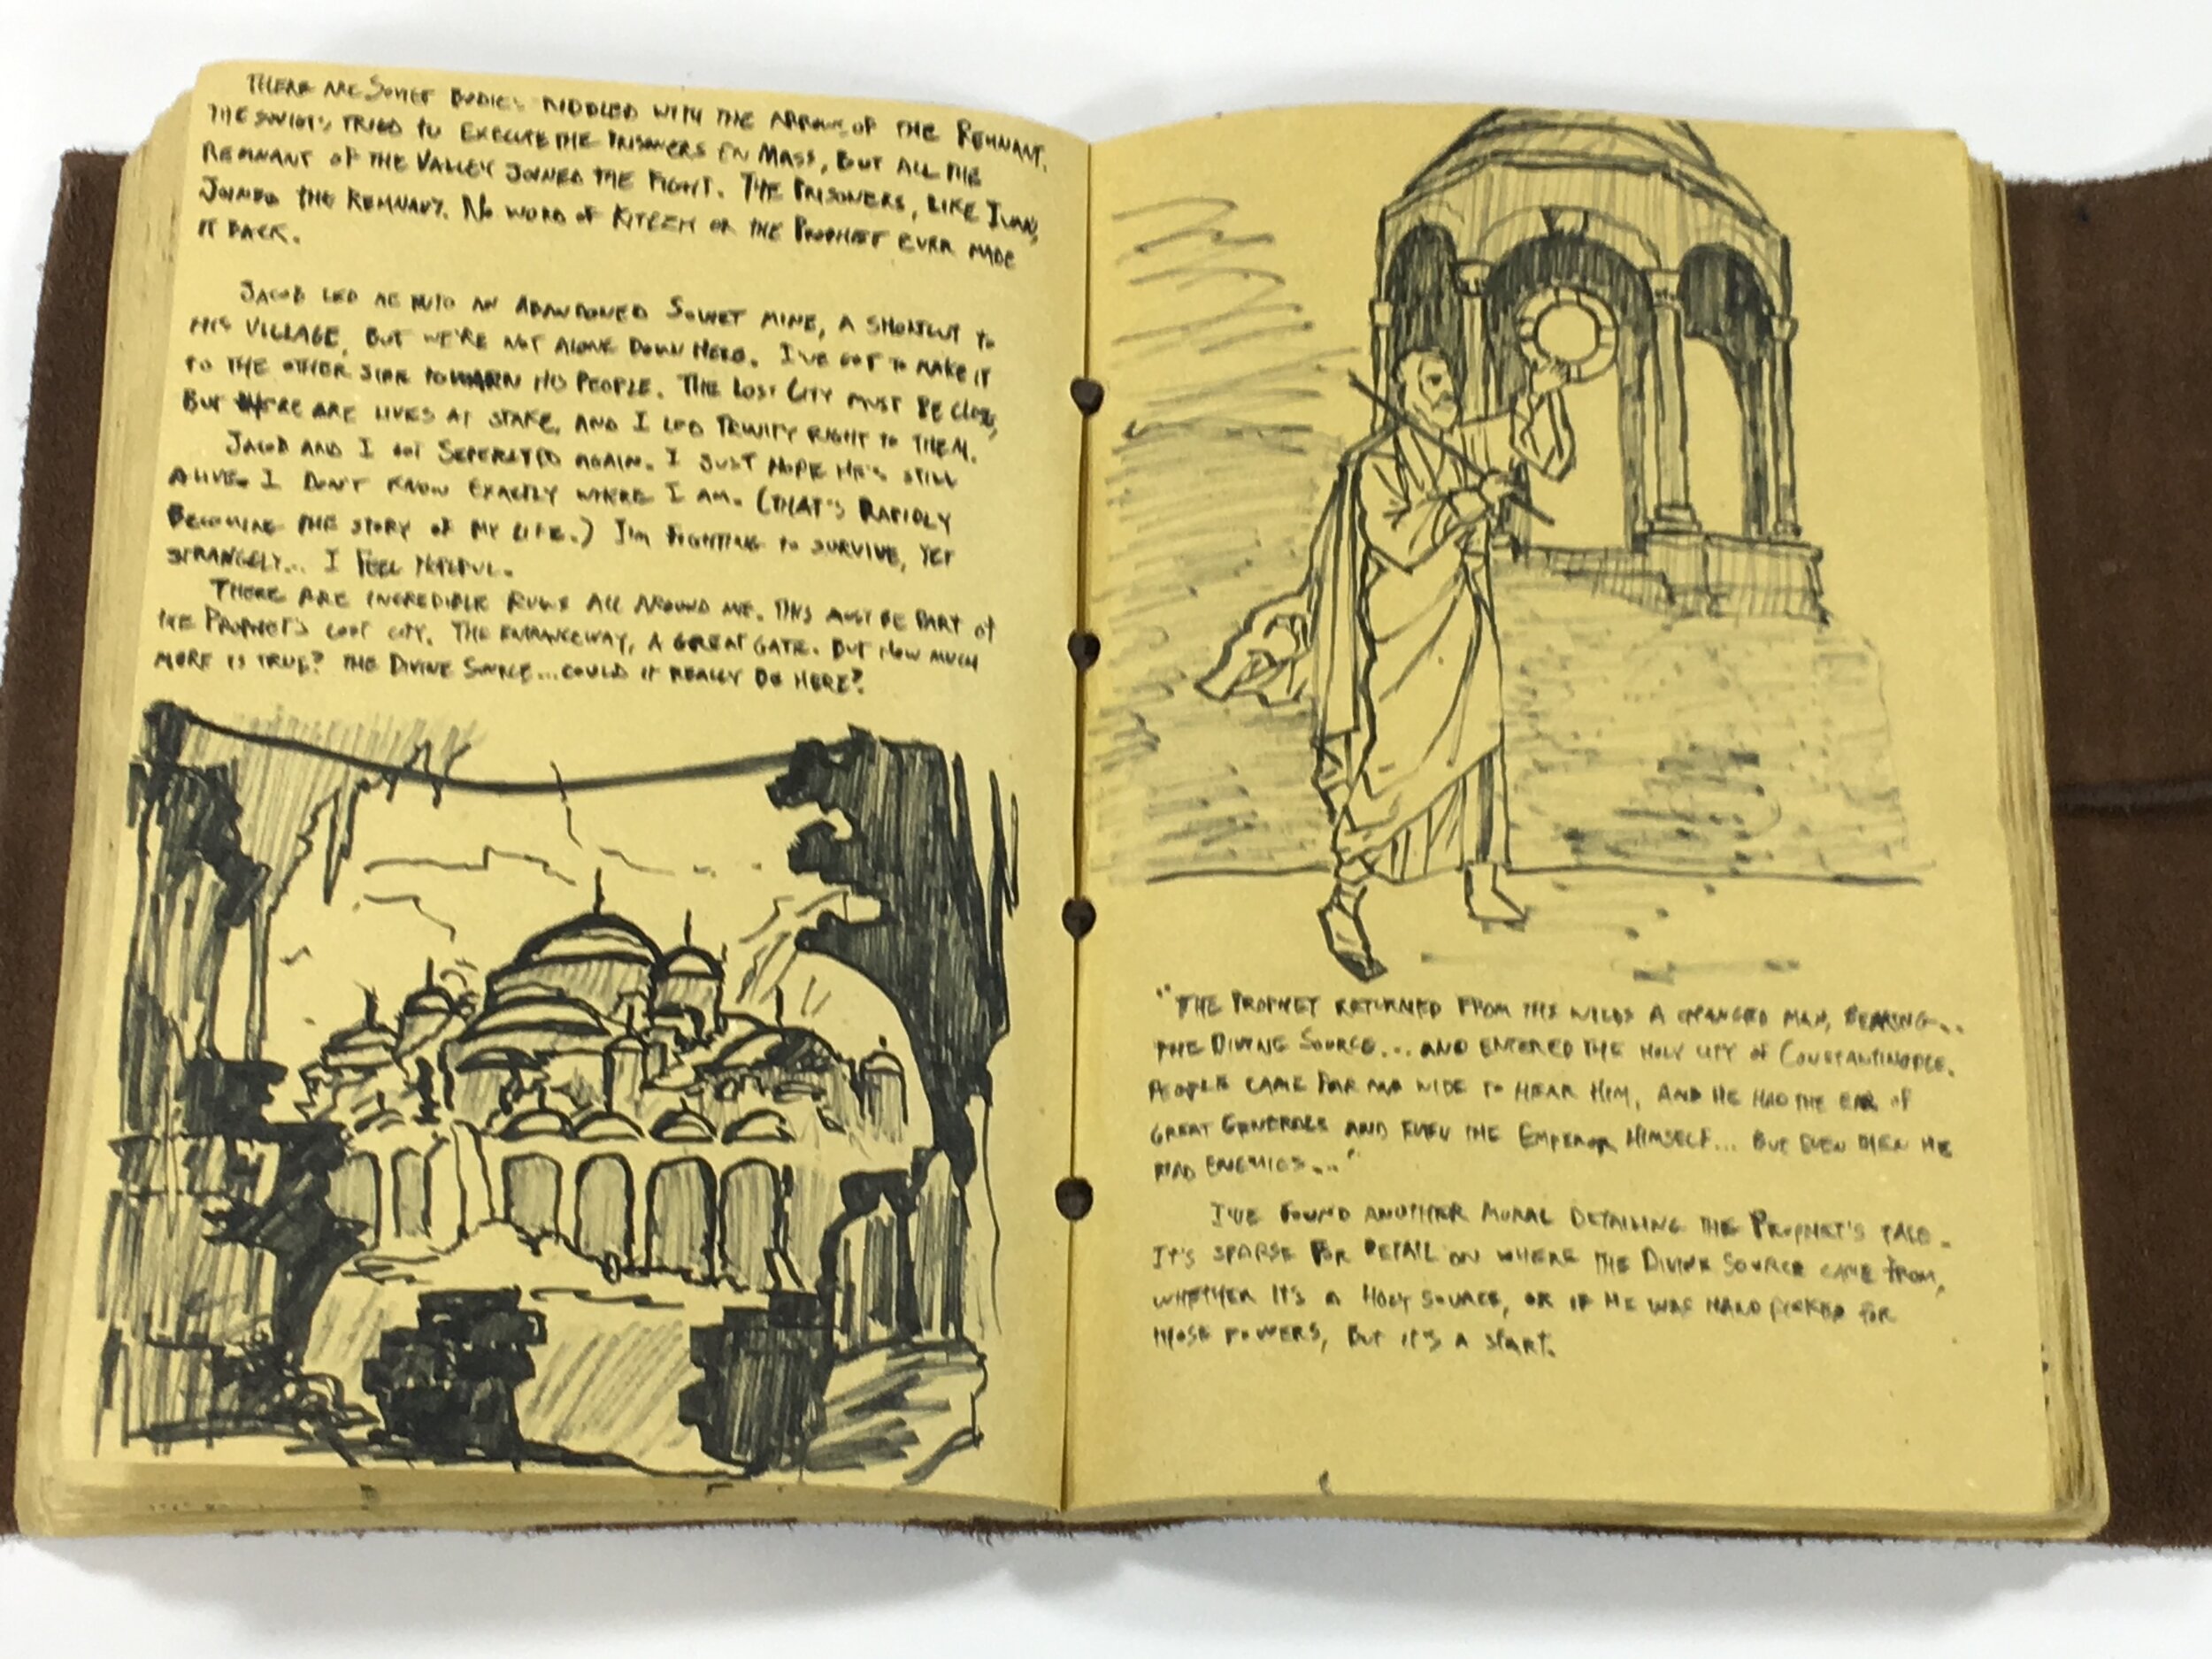 THERE ARE SOVIET BODIES RIDDLED WITH THE ARROWS OF THE REMNANT.
THE SOVIETS TRIED TO EXECUTE THE PRISONERS EN MASS, BUT ALL THE
REMNANT OF THE VALLEY JOINED THE FIGHT. THE PRISONERS, LIKE IVAN,
JOINED THE REMNANT. NO WORD OF KITEZH OR THE PROPHET EVER MADE
IT BACK.
JACOB LED ME INTO AN ABANDONED SOVIET MINE, A SHORTCUT TO
HIS VILLAGE, BUT WE'RE NOT ALONE DOWN HERE. I'VE GOT TO MAKE IT
TO THE OTHER SIDE TO WARN HIS PEOPLE. THE LOST CITY MUST BE CLOSE,
BUT THERE ARE LIVES AT STAKE, AND I LED TRINITY RIGHT TO THEM.
JACOB AND I GOT SEPERATED AGAIN. I JUST HOPE HE'S STILL
ALIVE. I DON'T KNOW EXACTLY WHERE I AM. (THAT'S RAPIDLY
BECOMING THE STORY OF MY LIFE.) I'M FIGHTING TO SURVIVE, YET
STRANGELY... I FEEL HOPEFUL.
THERE ARE INCREDIBLE RUINS ALL AROUND ME. THIS MUST BE PART OF
THE PROPHET'S LOST CITY. THE ENTRANCEWAY, A GREAT GATE. BUT HOW MUCH
MORE IS TRUE? THE DIVINE SOURCE...COULD IT REALLY BE HERE?
"THE PROPHET RETURNED FROM THE WILDS A CHANGED MAN, BEARING...
THE DIVINE SOURCE... AND ENTERED THE HOLY CITY OF CONSTANTINOPLE.
PEOPLE CAME FAR AND WIDE TO HEAR HIM, AND HE HAD THE EAR OF
GREAT GENERALS AND EVEN THE EMPEROR HIMSELF... BUT EVEN THEN HE
HAD ENEMIES..."
I'VE FOUND ANOTHER MURAL DETAILING THE PROPHET'S TALE.
IT'S SPARSE FOR DETAIL ON WHERE THE DIVINE SOURCE CAME FROM,
WHETHER IT'S A HOLY SOURCE, OR IF HE WAS HAND PICKED FOR
THOSE POWERS, BUT IT'S A START.